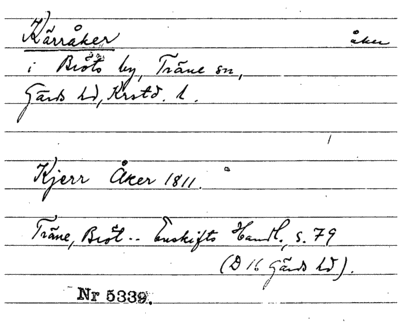 Kärråker åker
i Bröts by, Träne sn,
Gärds hd, Krstd. l.
Kjerr Åker 1811.
Träne, Bröt -- Enskifts Handl., s. 79
(D 16 Gärds hd).
Nr 5339.